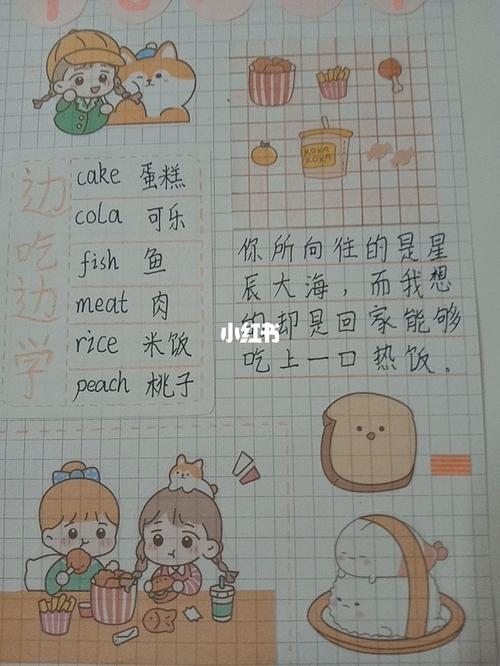 边吃边学
cake 蛋糕
cola 可乐
fish 鱼
meat 肉
rice 米饭
peach 桃子
KOKA
KOKA
你所向往的是星
辰大海，而我想
的却是回家能够
吃上一口热饭。
小红书